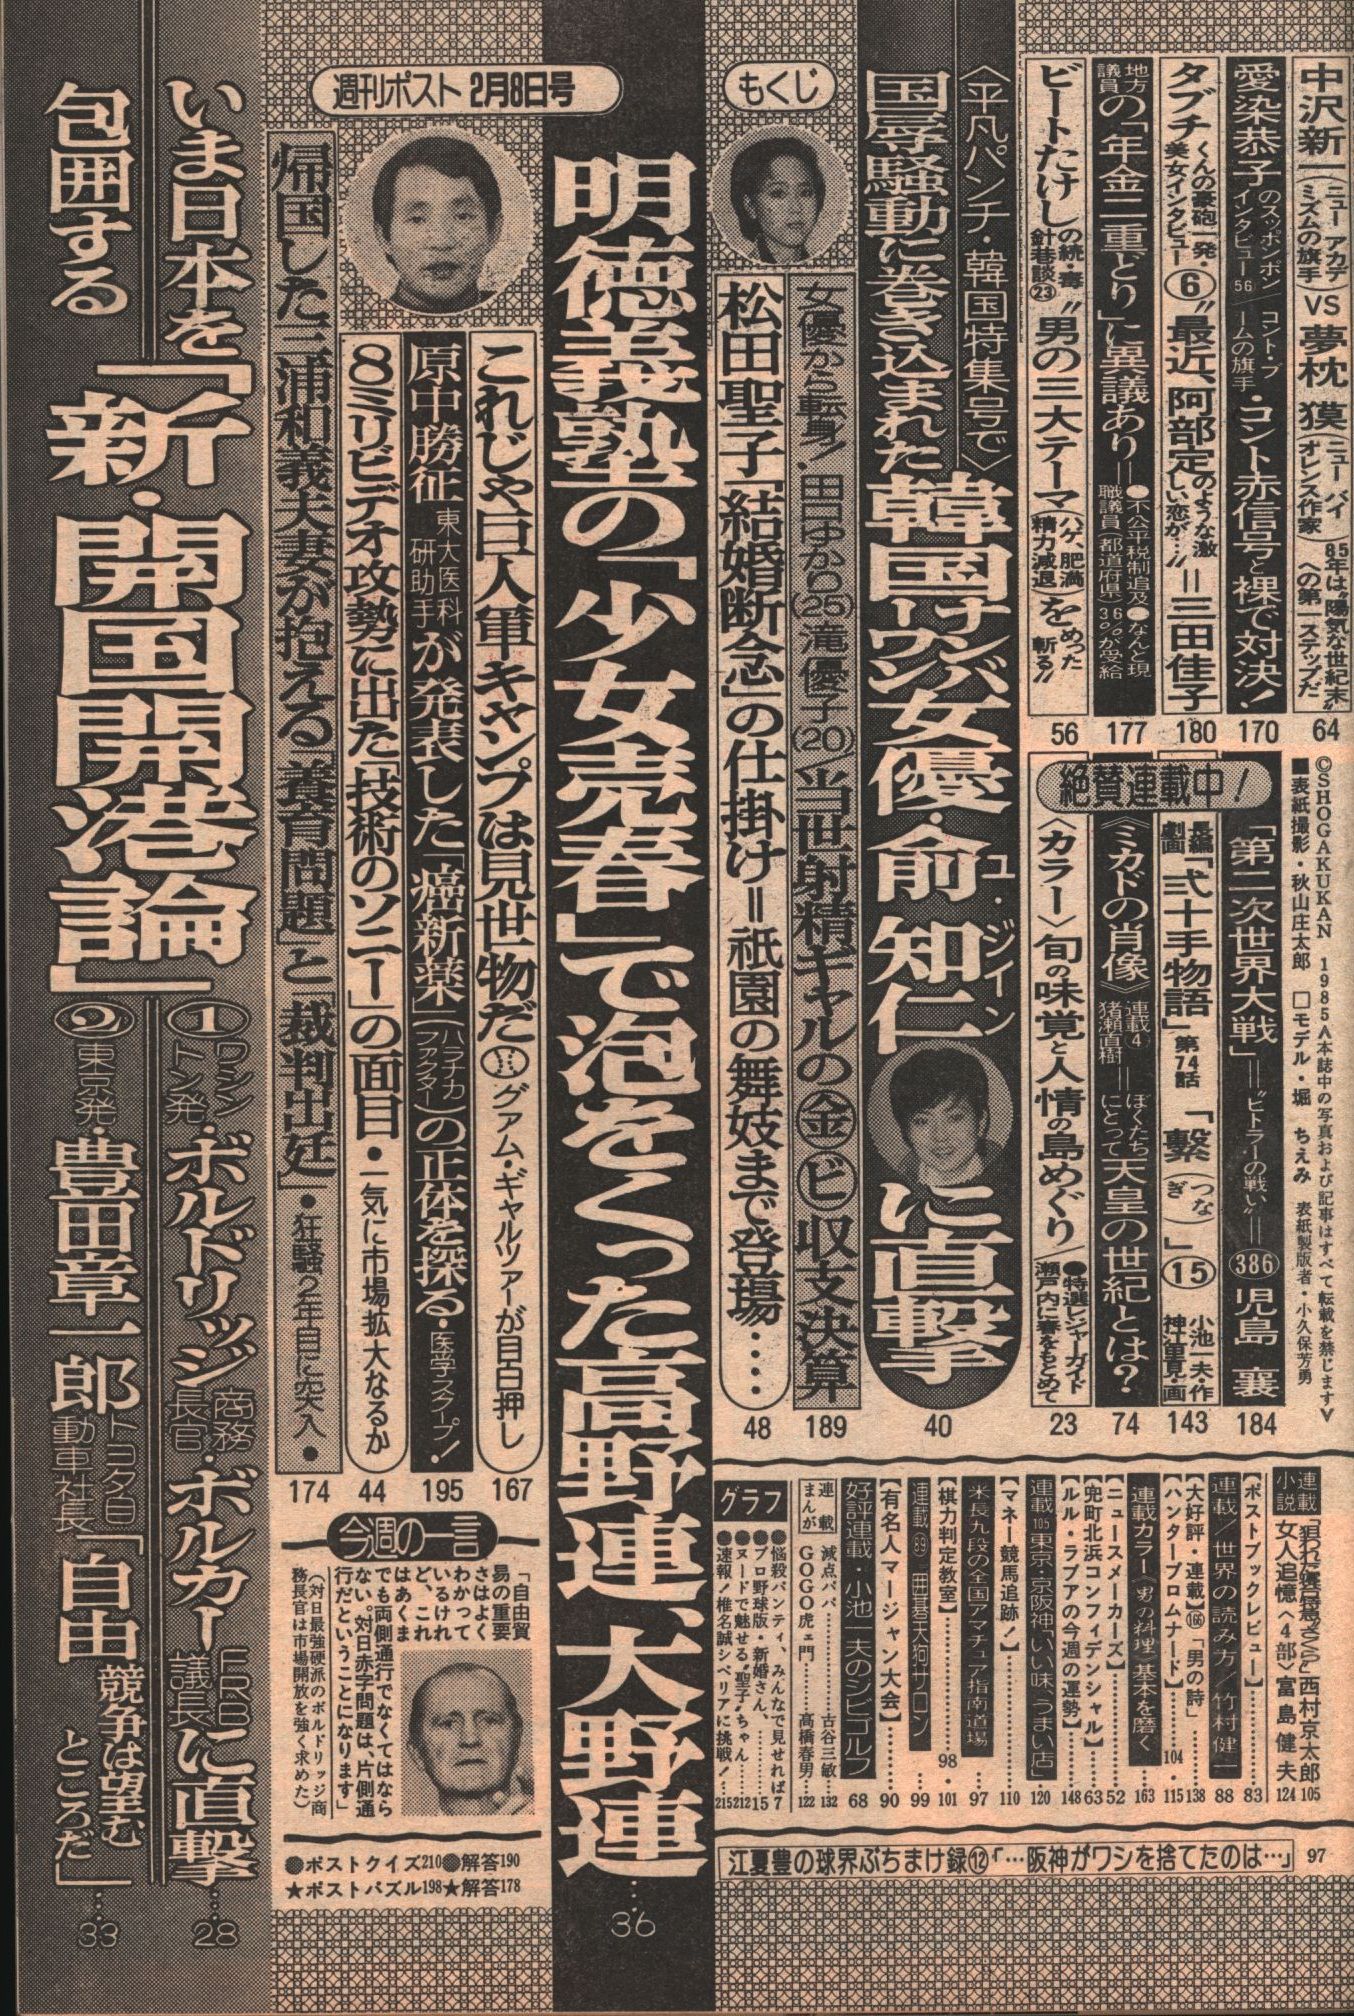 中沢新一(ニューアカデミズムの旗手)VS夢枕 獏(ニューバイオレンス作家)85年は“陽気な世紀末”への第一ステップだ 64
愛染恭子のスッポンポンインタビュー56/コント・ブームの旗手・コント赤信号と裸で対決! 170
タブチくんの豪砲一発・美女インタビュー⑥“最近、阿部定のような激しい恋が…”=三田佳子 180
地方議員の「年金二重どり」に異議あり=●不公平税制追及●なんと現職議員(都道府県)36%が受給 177
ビートたけしの続・毒針巷談㉓“男の三大テーマ(ハゲ、肥満、精力減退)をめった斬る” 56
©SHOGAKUKAN 1985 A本誌中の写真および記事はすべて転載を禁じます∀
■表紙撮影・秋山庄太郎 □モデル・堀 ちえみ 表紙製版者・小久保芳勇
絶賛連載中!
「第二次世界大戦」=“ヒトラーの戦い”=386 児島 襄 184
長編劇画「弐十手物語」第74話「繋(つなぎ)」⑮ 小池一夫・作 神江里見・画 143
《ミカドの肖像》連載④猪瀬直樹=ぼくたちにとって天皇の世紀とは? 74
〈カラー〉旬の味覚と人情の島めぐり/●特選レジャーガイド 瀬戸内に春をもとめて 23
連載小説
西村京太郎 105
女人追憶〈4部〉富島健夫 124
【ポストブックレビュー】……83
連載/世界の読み方/竹村健一 88
【大好評・連載】166「男の詩」……138
【ハンタープロムナード】……104・115
連載カラー〈男の料理〉基本を磨く 163
【ニュースメーカーズ】……52
【兜町北浜コンフィデンシャル】……63
【ルル・ラブアの今週の運勢】……148
連載105東京・京阪神「いい味、うまい店」 120
【マネー競馬追跡!】……110
米長九段の全国アマチュア指南道場 97
【棋力判定教室】……98・101
連載89囲碁天狗サロン 99
【有名人マージャン大会】……90
好評連載・小池一夫のシビゴルフ 68
連載まんが
減点パパ……古谷三敏 132
GOGO虎ェ門……高橋春男 122
グラフ
●悩殺パンティ、みんなで見せれば 7
●プロ野球版・新婚さん、……15
●ヌードで魅せる“聖子”ちゃん……212
●速報!椎名誠シベリアに挑戦!……215
江夏豊の球界ぶちまけ録⑫「…阪神がワシを捨てたのは…」 97
〈平凡パンチ・韓国特集号で〉
国辱騒動に巻き込まれた韓国ナンバーワン女優・兪 知仁ユ・ジインに直撃 40
もくじ
女優から転身!・田口ゆかり(25)滝優子(20)/当世射精ギャルの㊎㋪収支決算 189
松田聖子「結婚断念」の仕掛け=祇園の舞妓まで登場…… 48
明徳義塾の「少女売春」で泡をくった高野連、大野連…… 36
週刊ポスト 2月8日号
これじゃ巨人軍キャンプは見世物だ グァム・ギャルツアーが目白押し 167
原中勝征東大医科研助手が発表した「癌新薬」(ハラナカファクター)の正体を探る・医学スクープ! 195
8ミリビデオ攻勢に出た「技術のソニー」の面目・一気に市場拡大なるか 44
帰国した三浦和義夫妻が抱える「養育問題」と「裁判出廷」・狂騒2年目に突入・ 174
今週の一言
「自由貿易の重要さはよくわかっているけれど、これはあくまでも両側通行でなくてはならない。対日赤字問題は、片側通行だということになります」
(対日最強硬派のボルドリッジ商務長官は市場開放を強く求めた)
●ポストクイズ210●解答190
★ポストパズル198★解答178
いま日本を包囲する「新・開国開港論」
①ワシントン発・ボルドリッジ商務長官・ボルカーFRB議長に直撃…… 28
②東京発・豊田章一郎トヨタ自動車社長「自由競争は望むところだ」…… 33